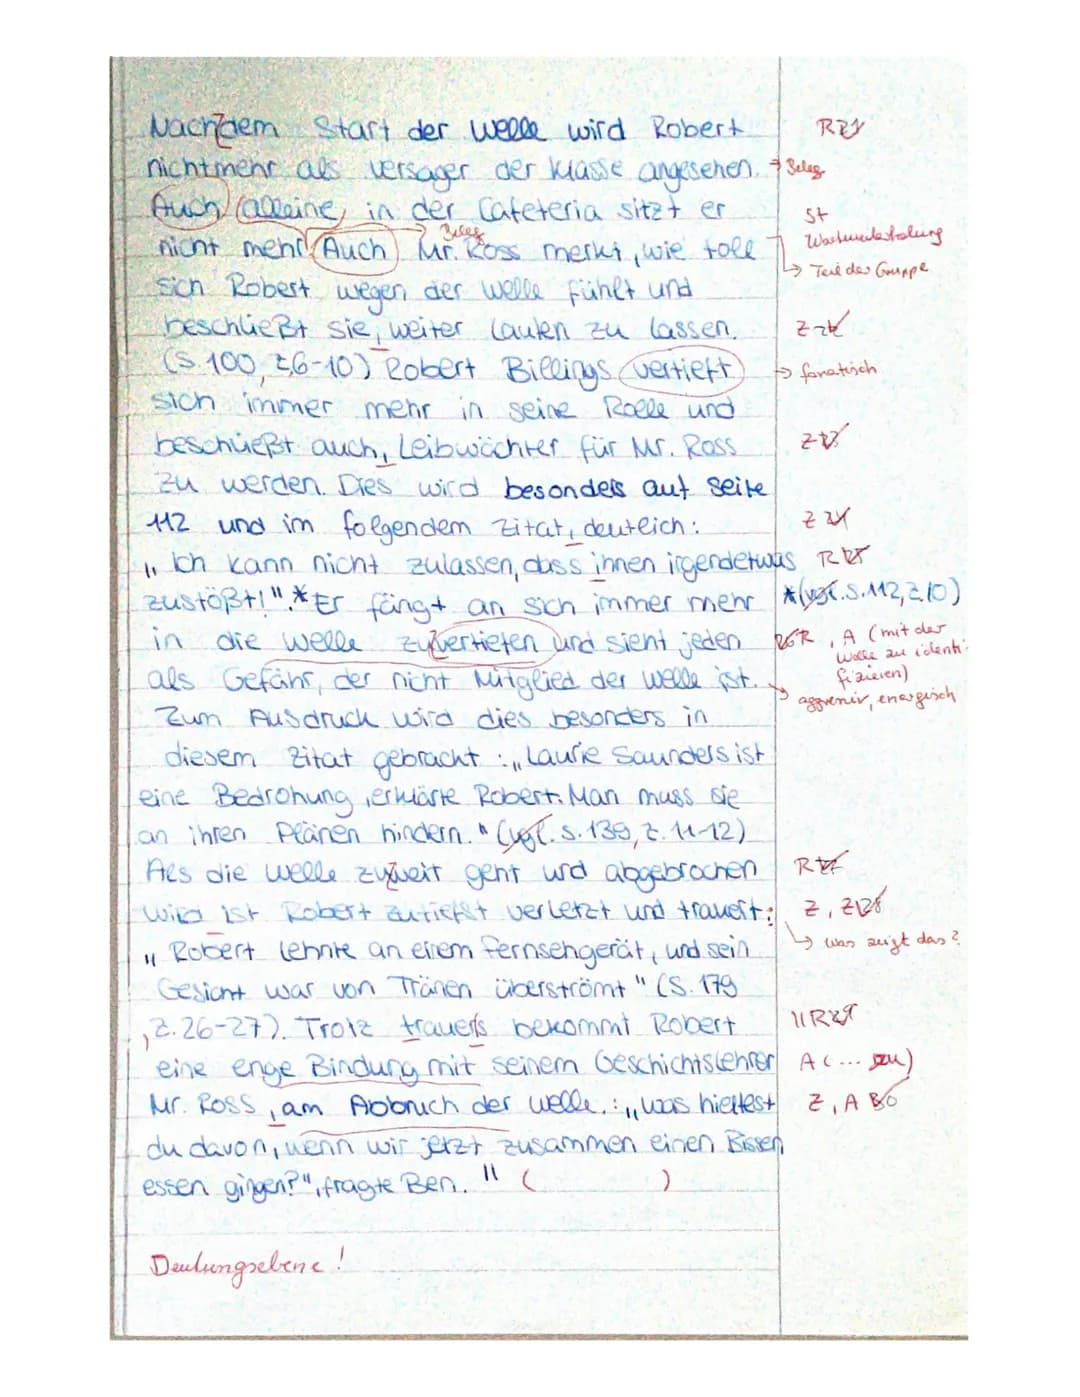 Nachdem Start der Welle wird Robert R21
nichtmehr als versager der klasse angesehen. → Beleg
Auch alleine, in der Cafeteria sitzt er St
nicht mehr. Auch → Beleg Mr. Ross merkt, wie toll Wortwiederholung
sich Robert wegen der Welle fühlt und → Teil der Gruppe
beschließt sie, weiter laufen zu lassen. Z
(S. 100, Z,6-10) Robert Billings vertieft → fanatisch
sich immer mehr in seine Rolle und
beschießt auch, Leibwächter für Mr. Ross Z
zu werden. Dies wird besonders auf Seite
112 und im folgendem Zitat, deutlich: Z
„Ich kann nicht zulassen, dass ihnen irgendetwas R
zustößt!".* Er fängt an sich immer mehr *(vgl. S. 112, Z. 10)
in die Welle zuvertiefen und sieht jeden R, A (mit der Welle zu identifizieren)
als Gefahr, der nicht Mitglied der Welle ist. → aggressiv, energisch
Zum Ausdruck wird dies besonders in
diesem Zitat gebracht : „Laurie Saunders ist
eine Bedrohung, erklärte Robert. Man muss sie
an ihren Plänen hindern." (vgl. S. 139, Z. 11-12)
Als die Welle zuweit geht und abgebrochen R
wird ist Robert zutiefst verletzt und trauert: Z, Z
„Robert lehnte an einem Fernsehgerät, und sein → was zeigt das?
Gesicht war von Tränen überströmt" (S. 179
, Z. 26-27). Trotz trauers bekommt Robert R
eine enge Bindung mit seinem Geschichtslehrer A (... zu)
Mr. Ross, am Abbruch der Welle.: „was hieltest Z, A
du davon, wenn wir jetzt zusammen einen Bissen
essen gingen?", fragte Ben." ( )
Deutungsebene!